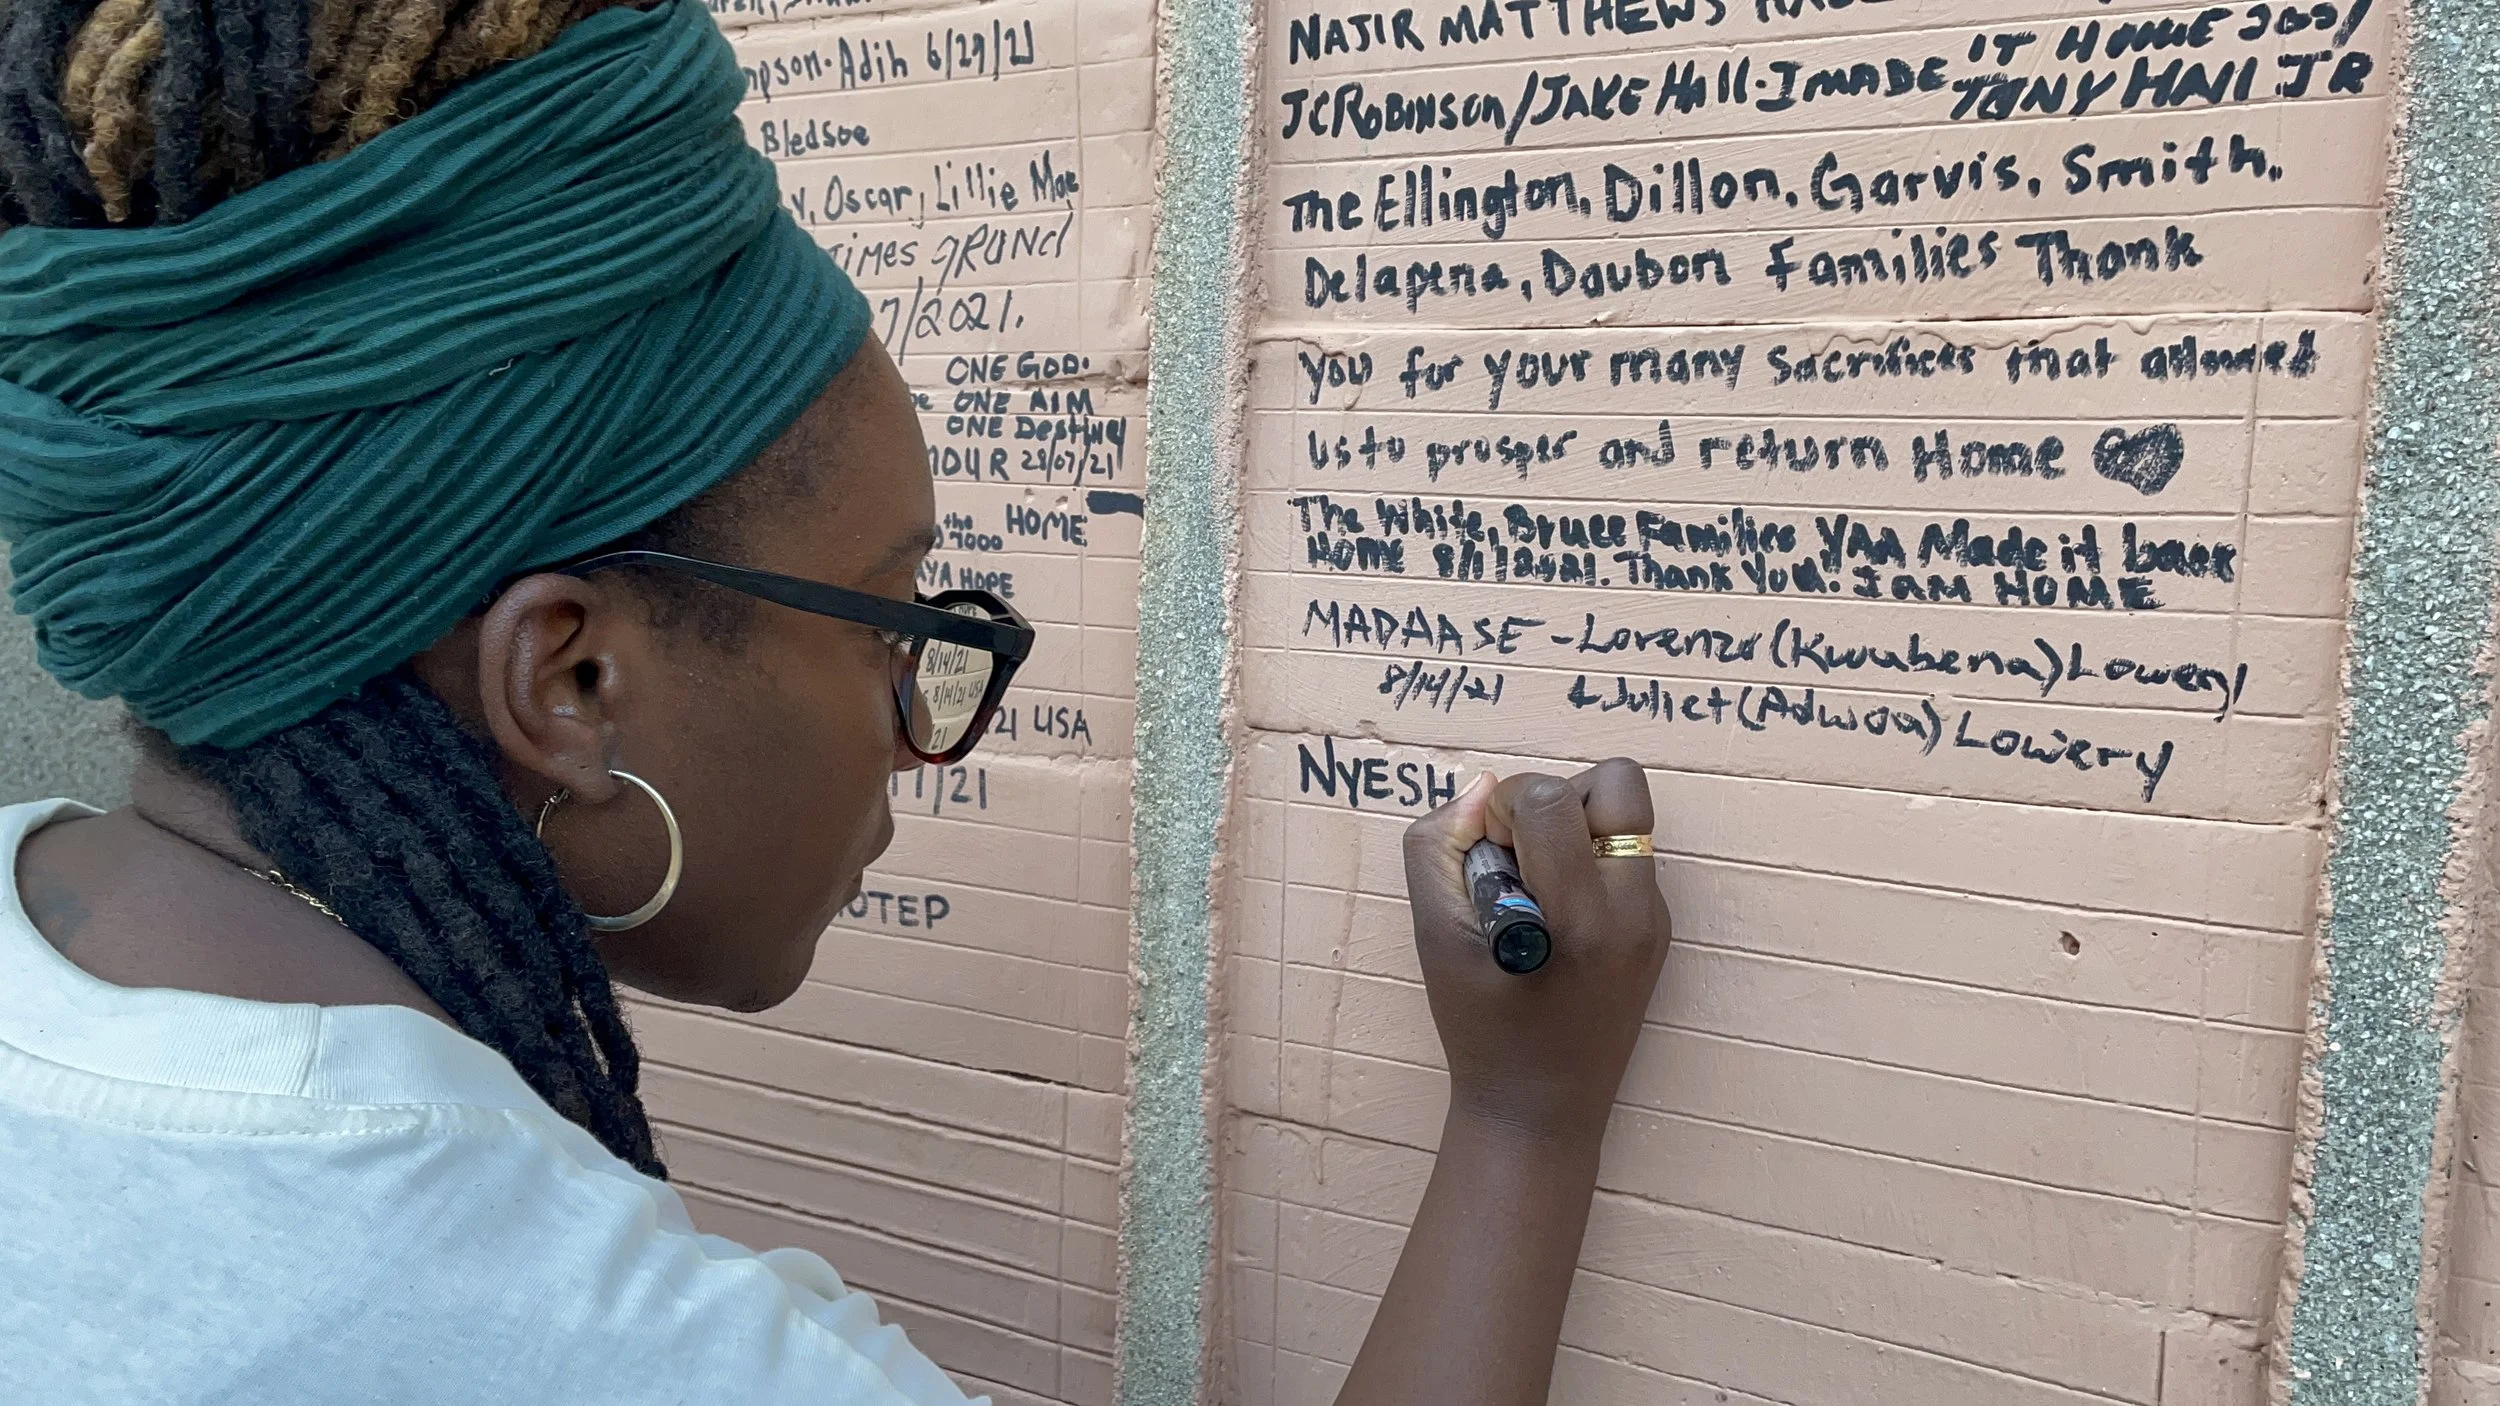 mpson-Adih 6/29/21
Bledsoe
y, Oscar, Lillie Mae
TIMES GRAND
7/2021.
ONE GOD.
ONE AIM
ONE Destiney
MOUR 28/07/21
the 7000 HOME
AYA HOPE
21 USA
11/21
HOTEP
8/14/21
8/14/21 USA
21
NAJIR MATTHEWS
JC ROBINSON/JAKE HAll-I MADE IT HOME
TONY HAll JR
The Ellington, Dillon, Garvis, Smith,
Delapena, Daubon Families Thank
You for your many sacrifices that allowed
us to prosper and return Home
The White, Bruce Families YAA Made it back
Home 8/1/2021. Thank You. I am HOME
MADAASE - Lorenzo (Kwabena) Lowery
8/14/21 & Juliet (Adwoa) Lowery
NYESH